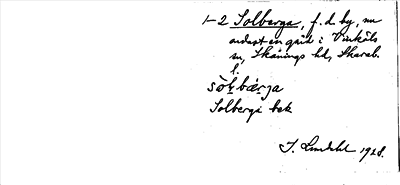 1-2 Solberga, f. d. by, nu
endast en gård i Vinköls
sn, Skånings hd, Skarab.
l.
sòɫbæ̀rja
Solbergs bek
J. Lindahl 1928.